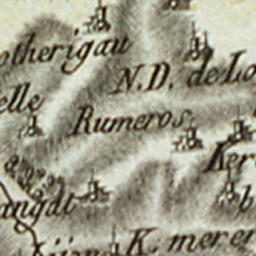 otherigau
N.D. de Lo
elle
Rumeros
Ker
angat
K. merer